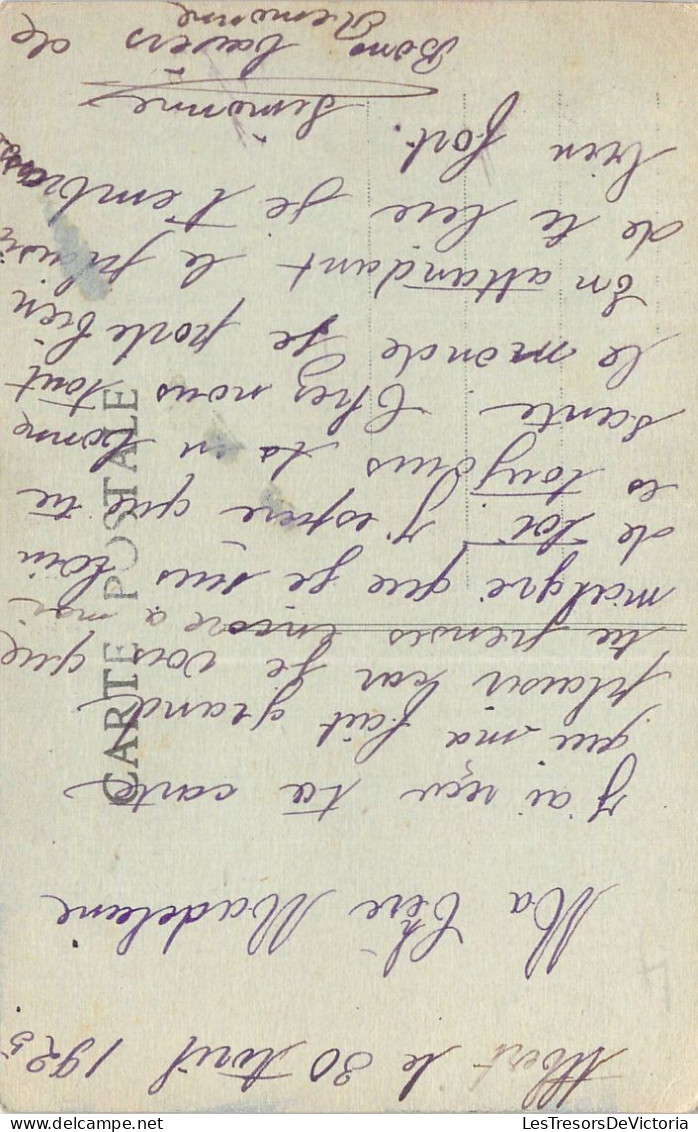 Albert le 30 Avril 1925
Ma Chère Madeleine
J'ai reçu ta carte
qui ma fait grand
plaisir car je vois que
tu penses encore a moi
malgré que je suis loin
de toi. J'espère que tu
es toujours ta en bonne
scante Chez nous tout
le monde se porte bien
En attandant le plaisir
de te lire je t'embrasse
bien fort.
Simonne
Bons baisers de
Simonne
CARTE POSTALE
LesTresorsDeVictoria